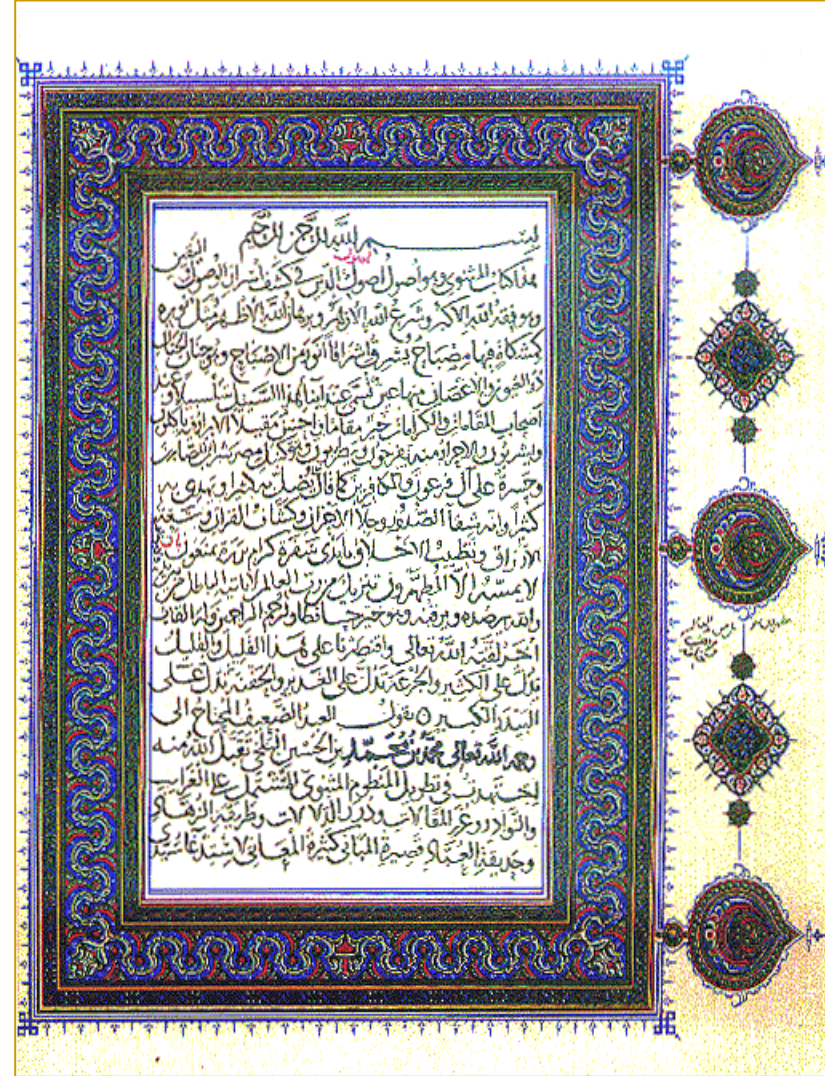 بسم الله الرحمن الرحيم
هذا كتاب المثنوي وهو اصول اصول الدين في كشف اسرار الوصول واليقين
وهو فقه الله الاكبر وشرع الله الازهر وبرهان الله الاظهر مثل نوره
كمشكاة فيها مصباح يشرق اشراقا انور من الاصباح وهو جنان الجنان
ذو العيون والاغصان منها عين تسمى عند ابناء هذا السبيل سلسبيلا وعند
اصحاب المقامات والكرامات خير مقاما واحسن مقيلا الابرار فيه ياكلون
ويشربون والاحرار منه يفرحون ويطربون وهو كنيل مصر شراب للصابرين
وحسرة على آل فرعون والكافرين كما قال يضل به كثيرا ويهدي به
كثيرا وانه شفا الصدور وجلا الاحزان وكشاف القرآن وسعة
الارزاق وتطييب الاخلاق بايدي سفرة كرام بررة يمنعون بان
لا يمسه الا المطهرون تنزيل من رب العالمين لا ياتيه الباطل من بين
والله يرصده ويرقبه وهو خير حافظا وهو ارحم الراحمين وله القاب
اخر لقبه الله تعالى واقتصرنا على هذا القليل والقليل
يدل على الكثير والجرعة تدل على الغدير والحفنة تدل على
البيدر الكبير ٥ يقول العبد الضعيف المحتاج الى
رحمة الله تعالى محمد بن محمد بن الحسين البلخي تقبل الله منه
اجتهدت في تطويل المنظوم المثنوي المشتمل على الغرايب
والنوادر وغرر المقالات ودرر الدلالات وطريقة الزهاد
وحديقة العباد قصيرة المباني كثيرة المعاني لاستدعا سيدي